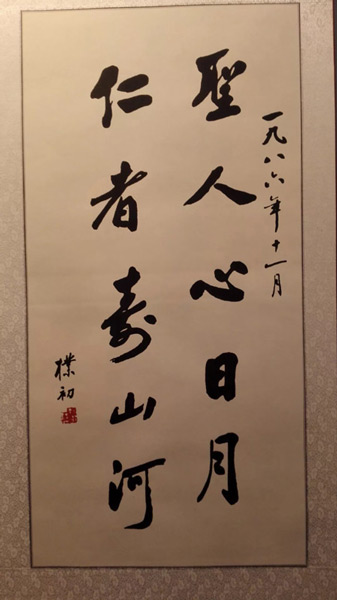 一九八六年十一月
聖人心日月
仁者寿山河
樸初